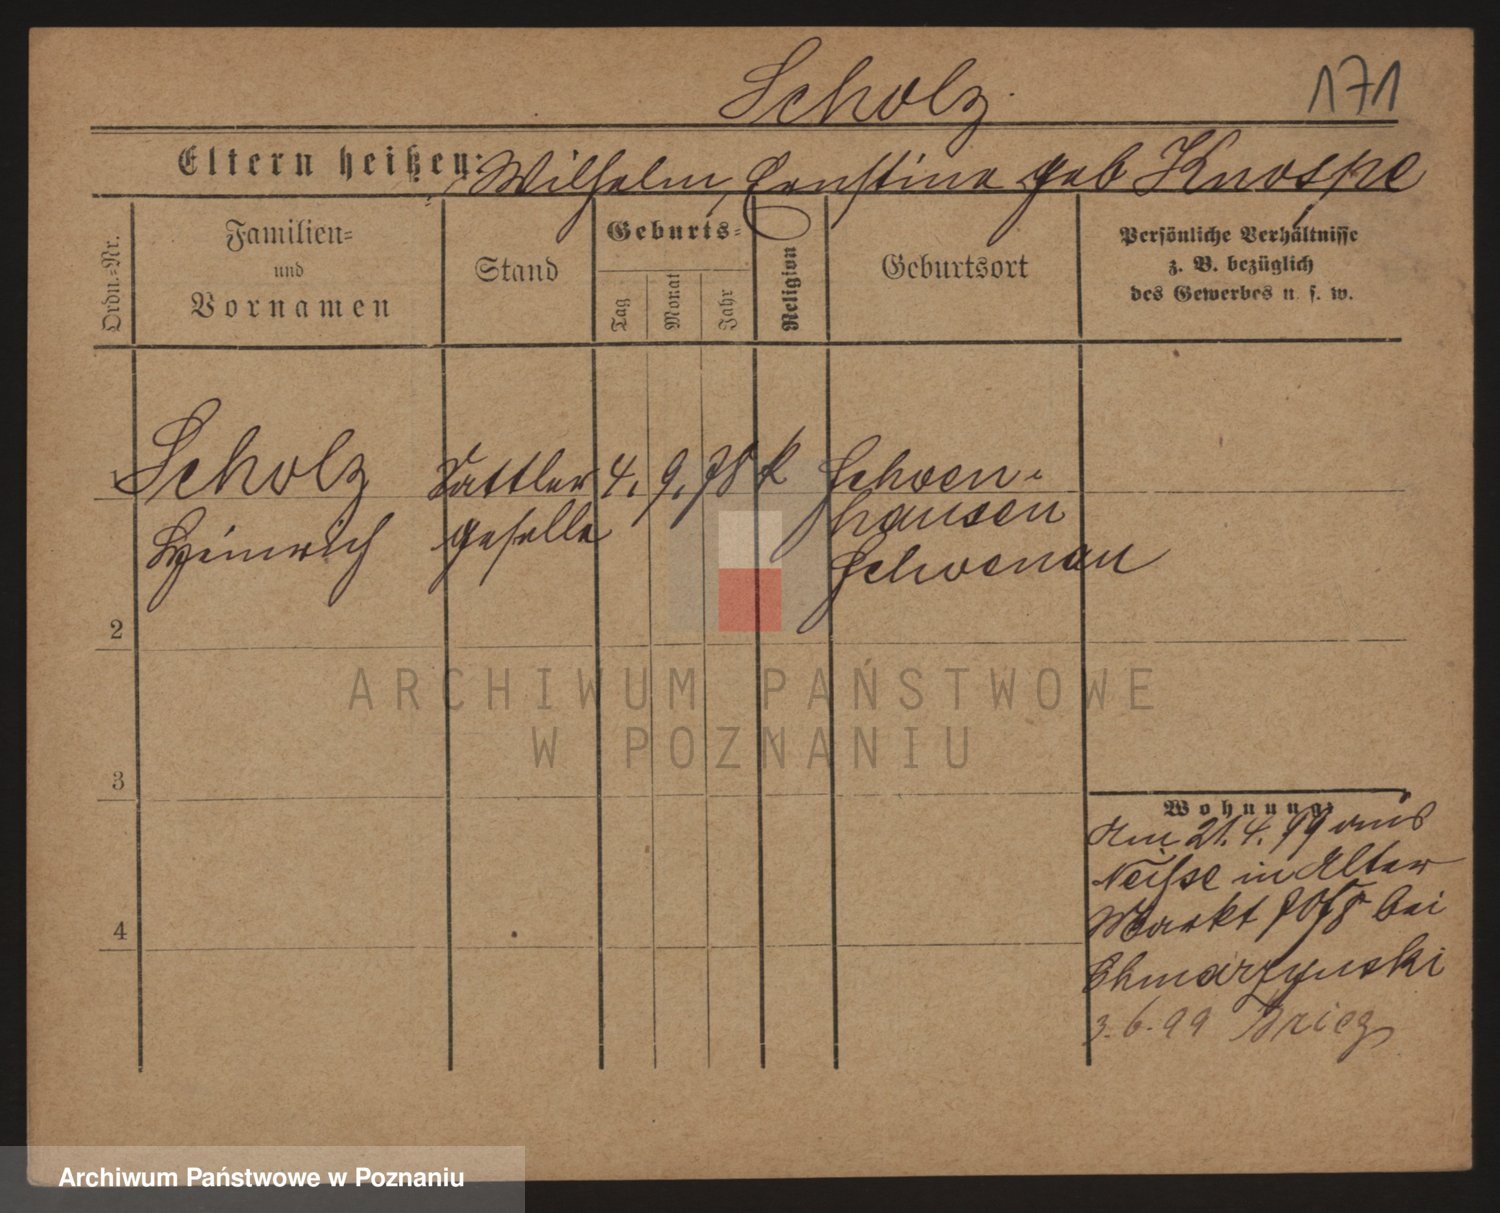 Scholz.
171
Eltern heißen: Wilhelm, Ernstine geb Knospe
Ordn.-Nr.
Familien-
und
Vornamen
Stand
Geburts-
Tag
Monat
Jahr
Religion
Geburtsort
Persönliche Verhältnisse
z. B. bezüglich
des Gewerbes u. s. w.
1
Scholz
Heinrich
Sattler
geselle
4. 9. 78
k
Schoen-
hausen
Schoenau
2
3
4
Wohnung:
Am 21.4.99 aus
Neisse in Alter
Markt bei
3.6.99 Brieg
ARCHIWUM PAŃSTWOWE
W POZNANIU
Archiwum Państwowe w Poznaniu